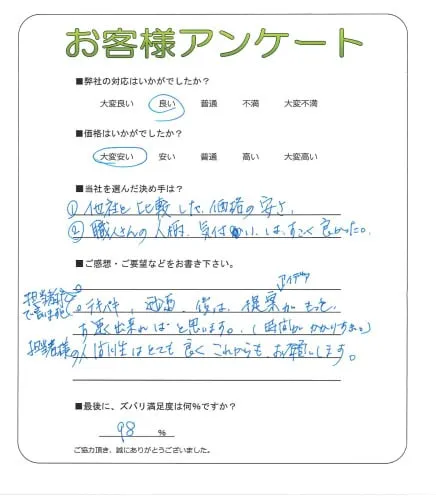 お客様アンケート
■弊社の対応はいかがでしたか?
大変良い 良い 普通 不満 大変不満
■価格はいかがでしたか?
大変安い 安い 普通 高い 大変高い
■当社を選んだ決め手は?
① 他社と比較した、価格の安さ、
② 職人さんの人柄、気付かい、は、すごく良かった。
■ご感想・ご要望などをお書き下さい。
アイデア
担当者
待ち、計画、後は、提案がもっと
お速く出来ればと思います。(時間がかかりすぎ。)
担当者様の人間性はとても良くこれからもお願いします。
■最後に、ズバリ満足度は何%ですか?
98 %
ご協力頂き、誠にありがとうございました。